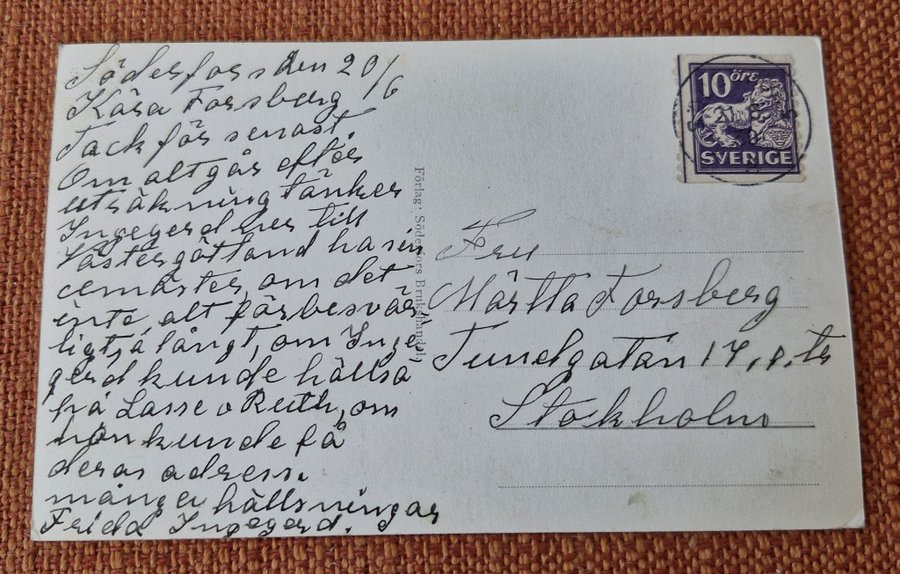 Söderfors den 20/6
Kära Forsberg
Tack för senast.
Om alt går efter
uträkning tänker
Ingegerd res till
Västergötland ha sin
cemäster, om det
inte, alt för besvär
ligt, å långt, om Inge
gerd kunde hällsa
på Lasse o Ruth, om
hon kunde få
deras adress.
många hällsningar
Frida Ingegerd.
Förlag: Söderfors Brukshandel
10 öre
SVERIGE
Fru
Märtta Forsberg
Tundgatan 17, 1. tr
Stockholm